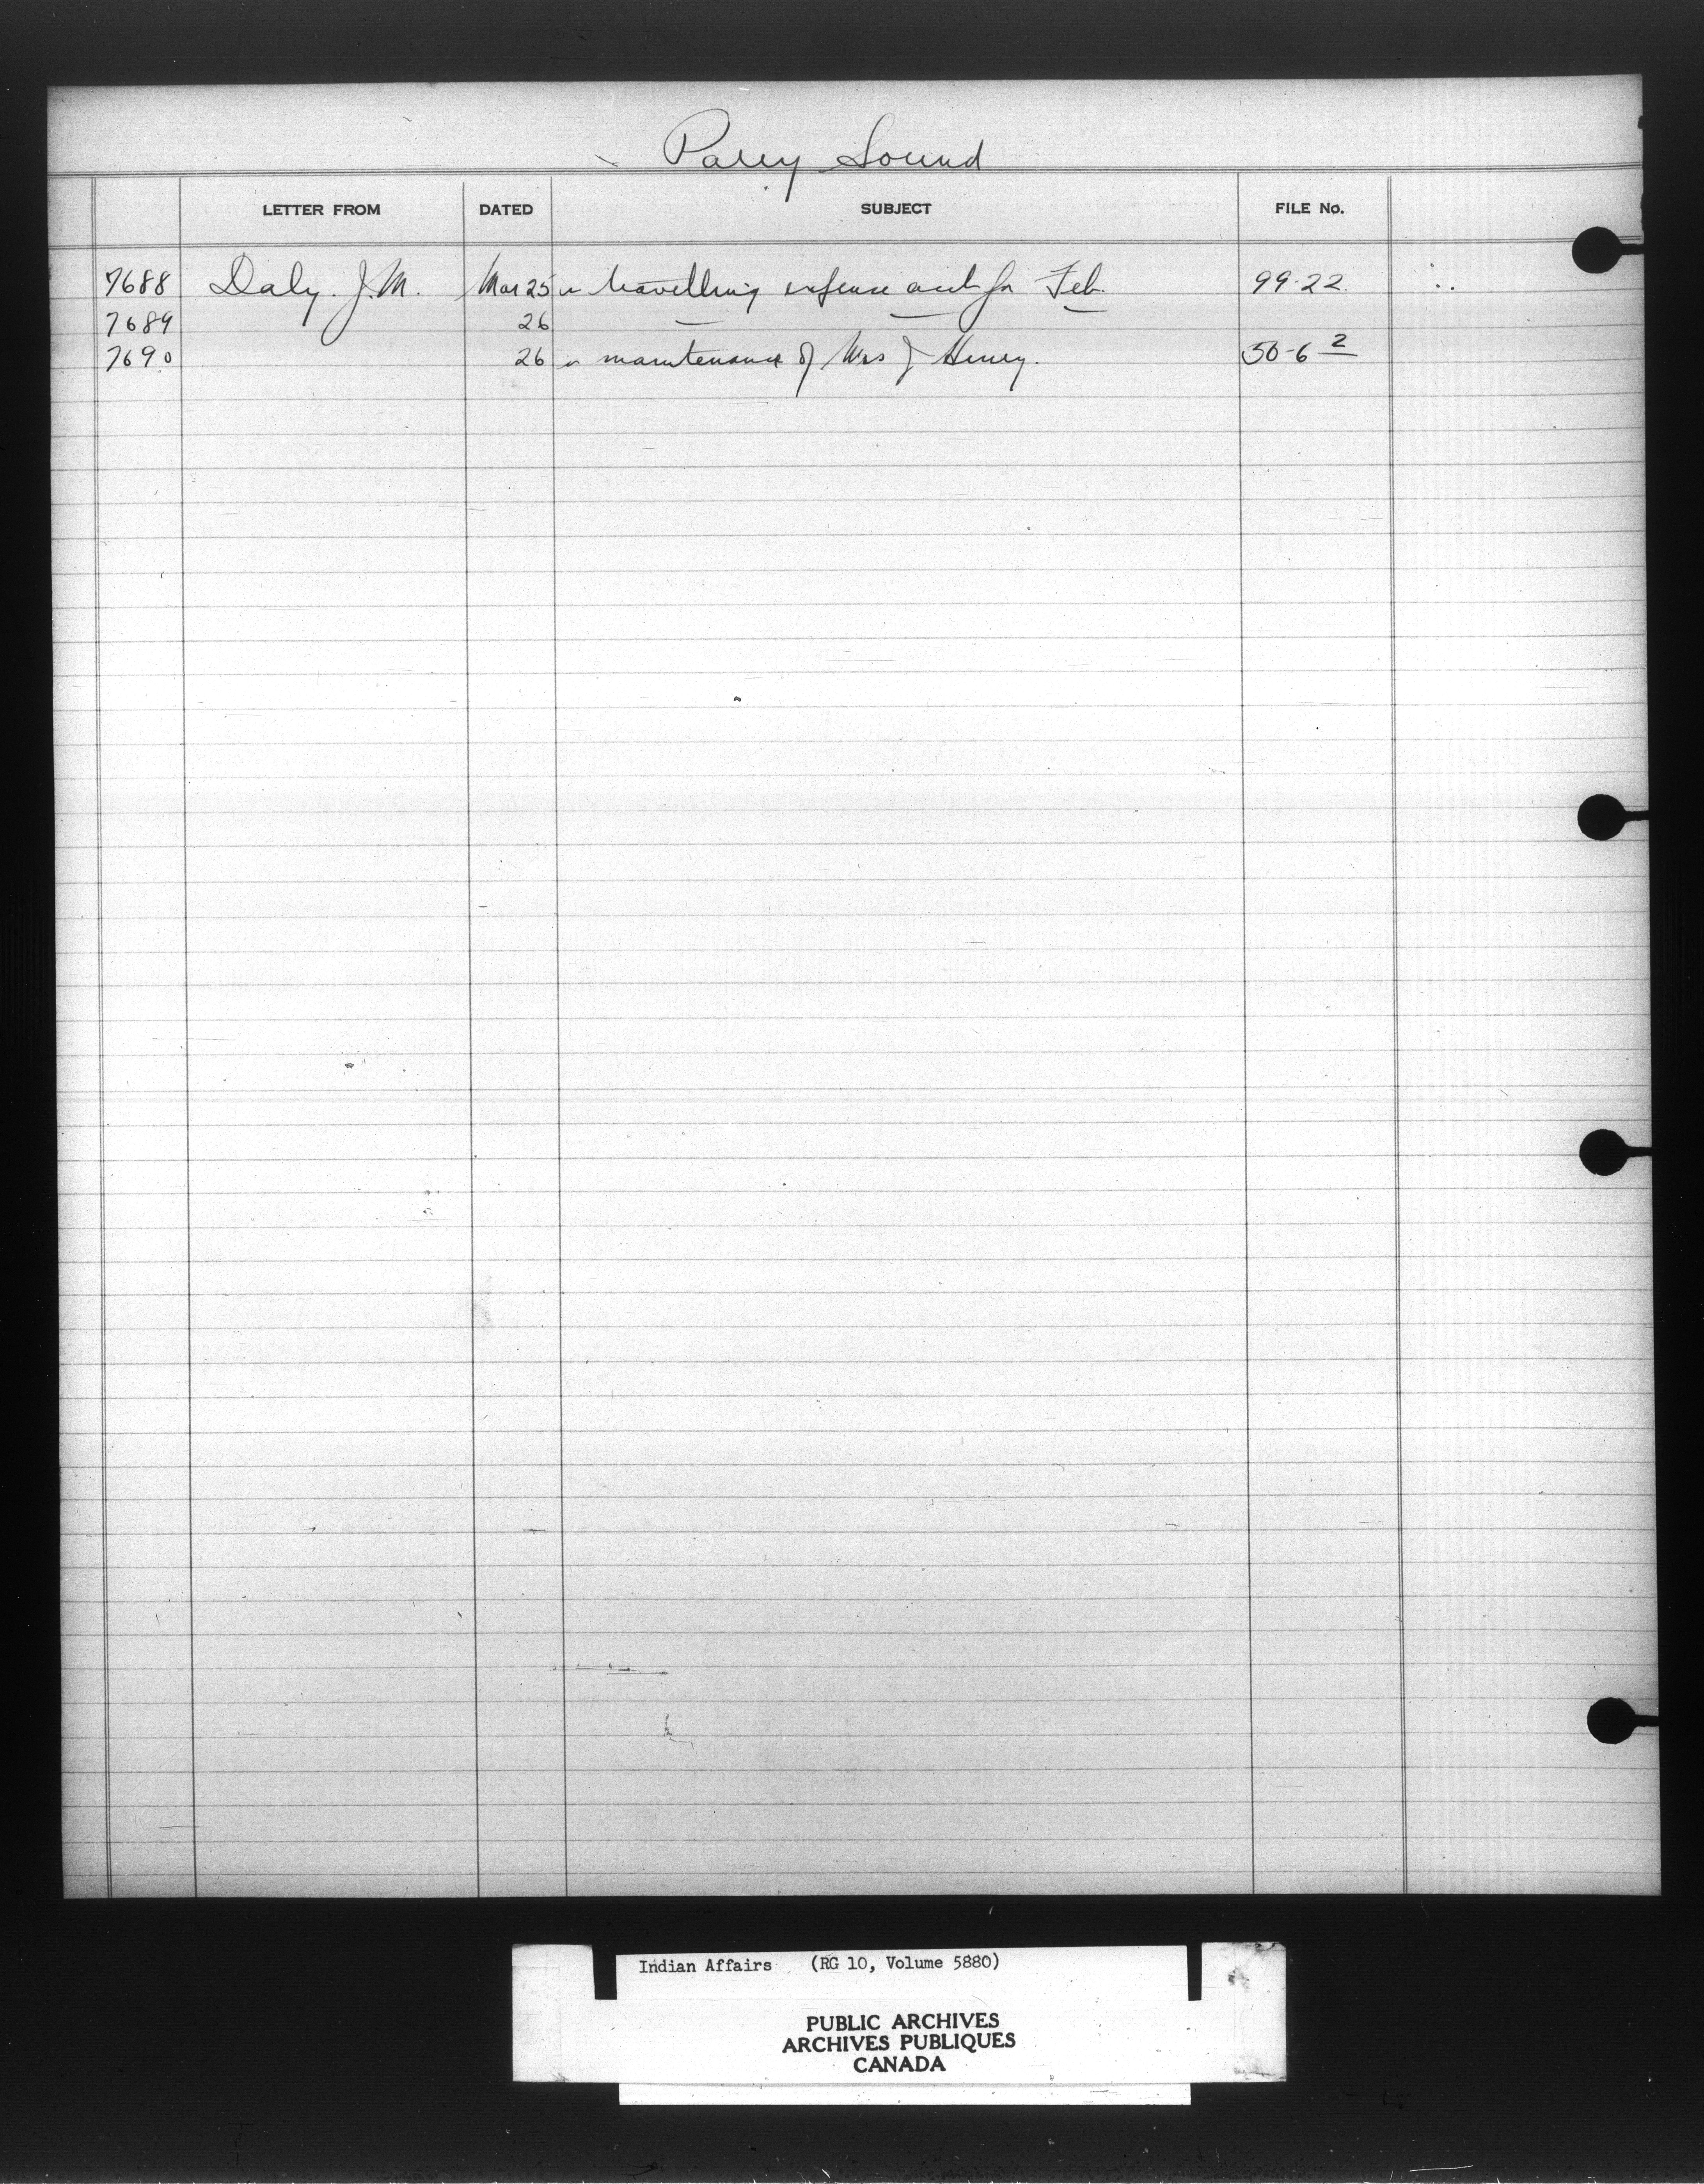 Parry Sound
LETTER FROM DATED SUBJECT FILE No.
7688 Daly. J.M. Mar 25 travelling expense acct for Feb. 99-22.
7689 26
7690 26 maintenance of Mrs J Henry. 50-6 2
Indian Affairs (RG 10, Volume 5880)
PUBLIC ARCHIVES
ARCHIVES PUBLIQUES
CANADA